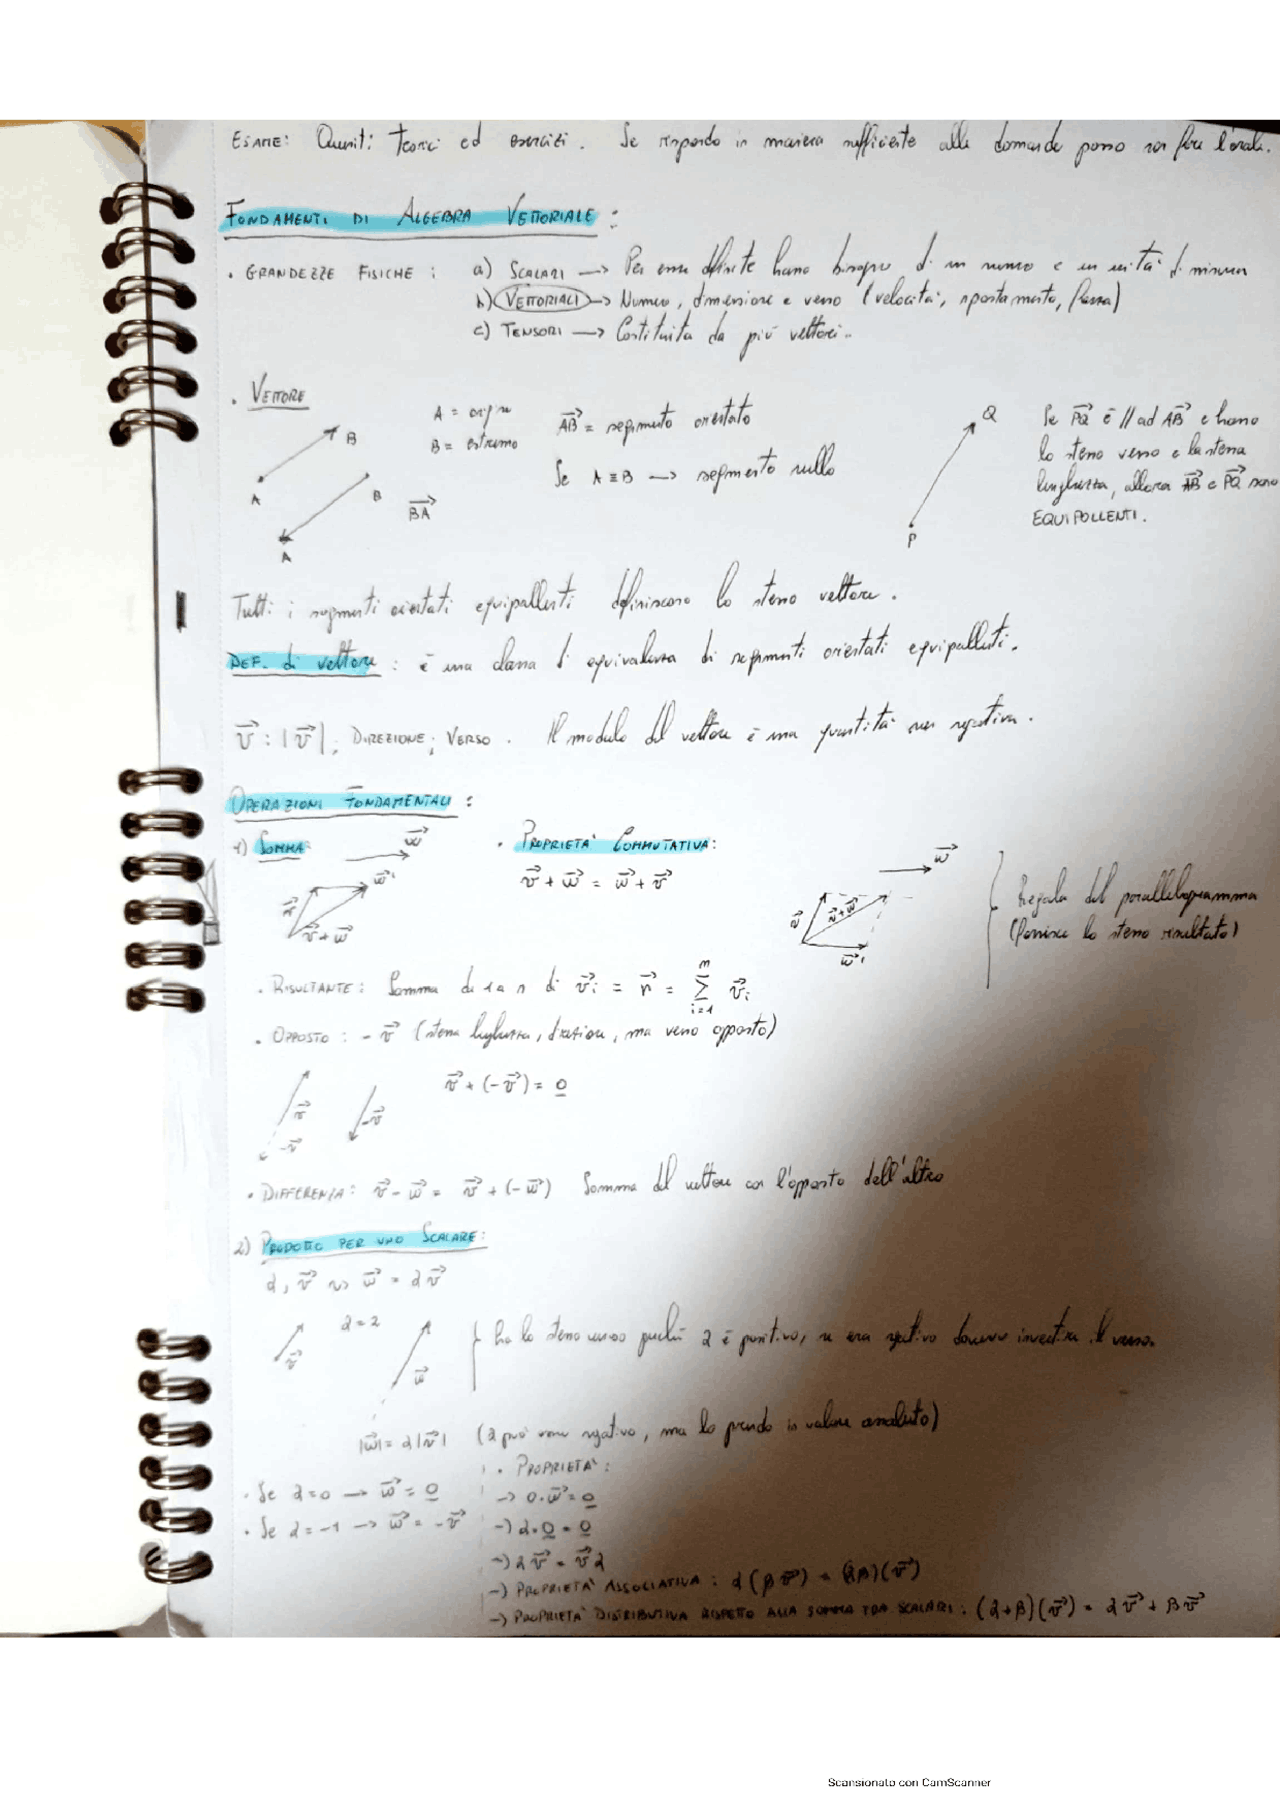 ESAME: Quesiti: teorici ed esercizi. Se rispondo in maniera sufficiente alle domande posso non fare l'orale.
FONDAMENTI DI ALGEBRA VETTORIALE:
• GRANDEZZE FISICHE: a) SCALARI → Per essere definite hanno bisogno di un numero e un unità di misura
b) VETTORIALI → Numero, dimensione e verso (velocità, spostamento, forza)
c) TENSORI → Costituita da più vettori..
• VETTORE
A = origine
B = estremo
AB→ = segmento orientato
Se A ≡ B → segmento nullo
B
A
B
A
BA→
Q
P
Se PQ→ è // ad AB→ e hanno
lo stesso verso e la stessa
lunghezza, allora AB→ e PQ→ sono
EQUIPOLLENTI.
Tutti i segmenti orientati equipollenti definiscono lo stesso vettore.
DEF. di vettore: è una classe di equivalenza di segmenti orientati equipollenti.
v→ : |v→|; DIREZIONE; VERSO. Il modulo del vettore è una quantità non negativa.
OPERAZIONI FONDAMENTALI:
1) SOMMA: w→
w→'
v→
v→ + w→
• PROPRIETA' COMMUTATIVA:
v→ + w→ = w→ + v→
w→
v→
v→ + w→
w→'
Regola del parallelogramma
(fornisce lo stesso risultato)
• RISULTANTE: Somma da 1 a n di v→i = r→ = Σ v→i
n
i=1
• OPPOSTO: - v→ (stessa lunghezza, direzione, ma verso opposto)
v→ + (-v→) = 0
v→
-v→
-v→
• DIFFERENZA: v→ - w→ = v→ + (-w→) Somma del vettore con l'opposto dell'altro
2) PRODOTTO PER UNO SCALARE:
α, v→ ~> w→ = αv→
α = 2
v→
w→
ha lo stesso verso perché α è positivo, se era negativo dovevo invertire il verso.
|w→| = α|v→| (α può essere negativo, ma lo prendo in valore assoluto)
• Se α = 0 → w→ = 0
• Se α = -1 → w→ = -v→
• PROPRIETA':
→ 0·w→ = 0
→ α·0 = 0
→ αv→ = v→α
→ PROPRIETA' ASSOCIATIVA: α(βv→) = (αβ)(v→)
→ PROPRIETA' DISTRIBUTIVA RISPETTO ALLA SOMMA TRA SCALARI: (α+β)(v→) = αv→ + βv→
Scansionato con CamScanner